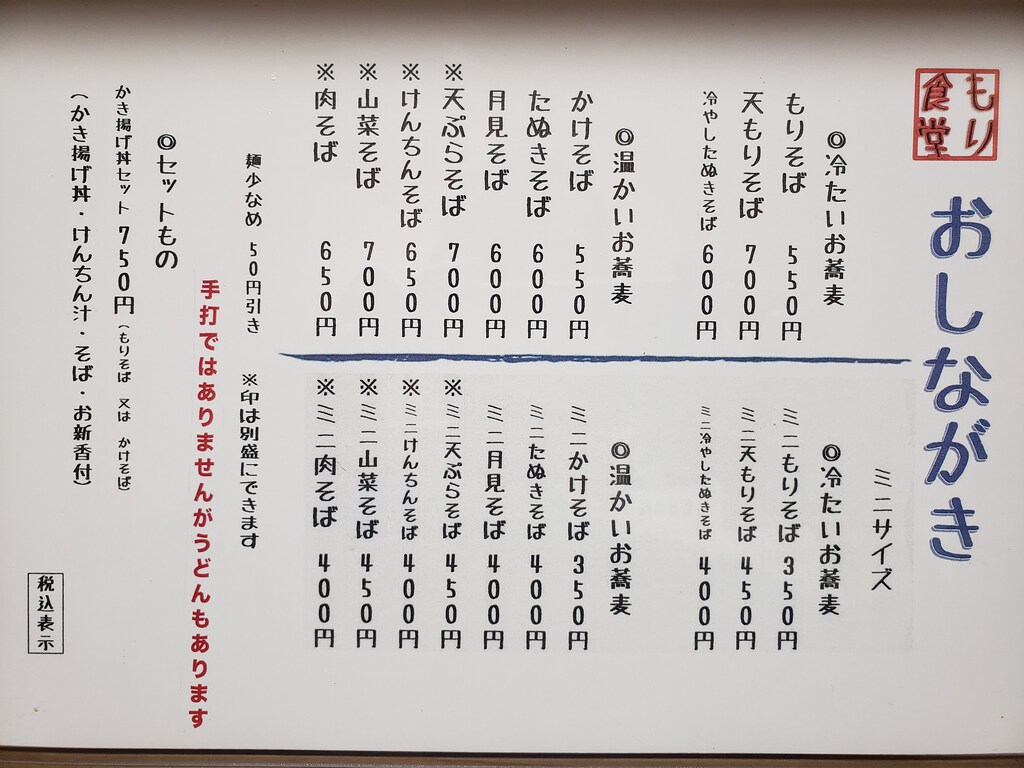 もり食堂
おしながき
◎冷たいお蕎麦
もりそば 550円
天もりそば 700円
冷やしたぬきそば 600円
◎温かいお蕎麦
かけそば 550円
たぬきそば 600円
月見そば 600円
※天ぷらそば 700円
※けんちんそば 650円
※山菜そば 700円
※肉そば 650円
ミニサイズ
◎冷たいお蕎麦
ミニもりそば 350円
ミニ天もりそば 450円
ミニ冷やしたぬきそば 400円
◎温かいお蕎麦
ミニかけそば 350円
ミニたぬきそば 400円
ミニ月見そば 400円
※ミニ天ぷらそば 450円
※ミニけんちんそば 400円
※ミニ山菜そば 450円
※ミニ肉そば 400円
麺少なめ 50円引き ※印は別盛にできます
手打ではありませんがうどんもあります
◎セットもの
かき揚げ丼セット 750円(もりそば 又は かけそば)
(かき揚げ丼・けんちん汁・そば・お新香付)
税込表示